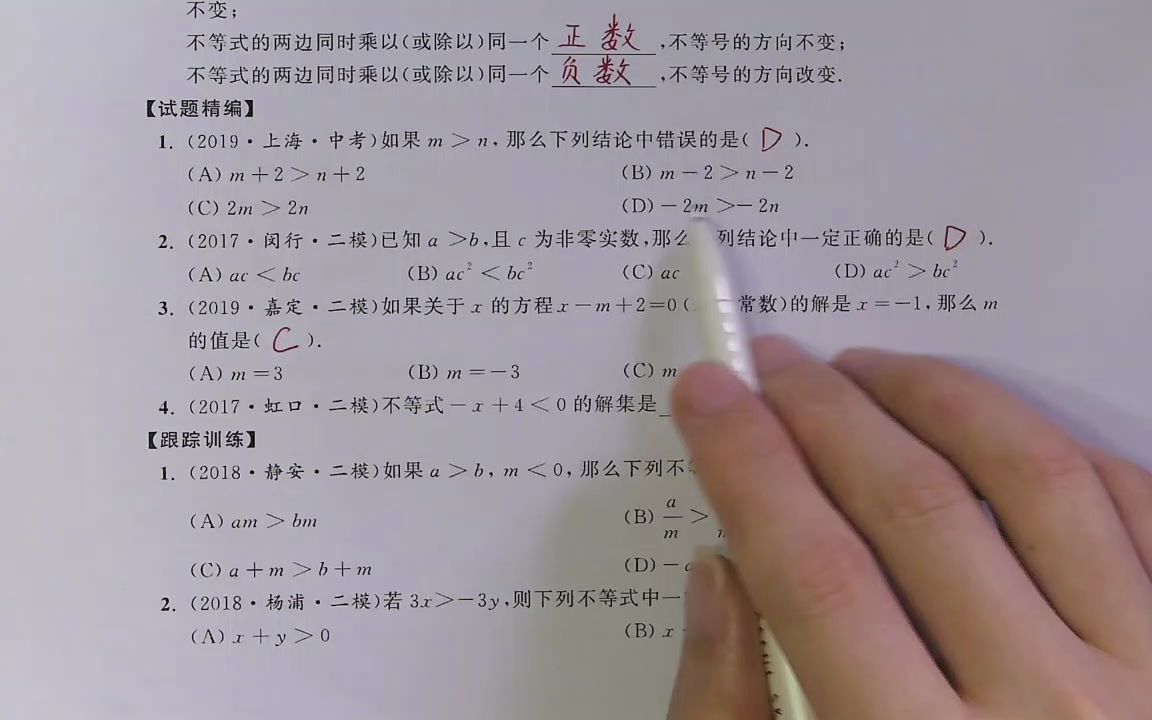 不变；
不等式的两边同时乘以(或除以)同一个 正数 ,不等号的方向不变；
不等式的两边同时乘以(或除以)同一个 负数 ,不等号的方向改变.
【试题精编】
1. (2019·上海·中考)如果 m > n, 那么下列结论中错误的是( D ).
(A) m + 2 > n + 2 (B) m - 2 > n - 2
(C) 2m > 2n (D) -2m > -2n
2. (2017·闵行·二模)已知 a > b,且 c 为非零实数,那么 列结论中一定正确的是( D ).
(A) ac < bc (B) ac² < bc² (C) ac (D) ac² > bc²
3. (2019·嘉定·二模)如果关于 x 的方程 x - m + 2 = 0 ( 常数)的解是 x = -1, 那么 m
的值是( C ).
(A) m = 3 (B) m = -3 (C) m
4. (2017·虹口·二模)不等式 -x + 4 < 0 的解集是
【跟踪训练】
1. (2018·静安·二模)如果 a > b, m < 0, 那么下列不
(A) am > bm (B) a/m >
(C) a + m > b + m (D) -
2. (2018·杨浦·二模)若 3x > -3y,则下列不等式中一
(A) x + y > 0 (B) x